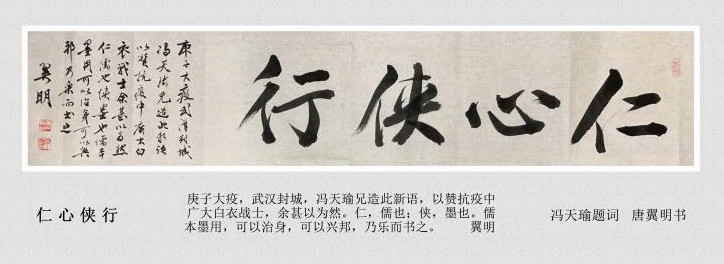 仁心侠行
庚子大疫武汉封城
冯天瑜兄造此新语
以赞抗疫中广大白
衣战士余甚以为然
仁儒也侠墨也儒本
墨用可以治身可以兴
邦乃乐而书之
翼明
仁心侠行
庚子大疫，武汉封城，冯天瑜兄造此新语，以赞抗疫中
广大白衣战士，余甚以为然。仁，儒也；侠，墨也。儒
本墨用，可以治身，可以兴邦，乃乐而书之。 翼明
冯天瑜题词 唐翼明书